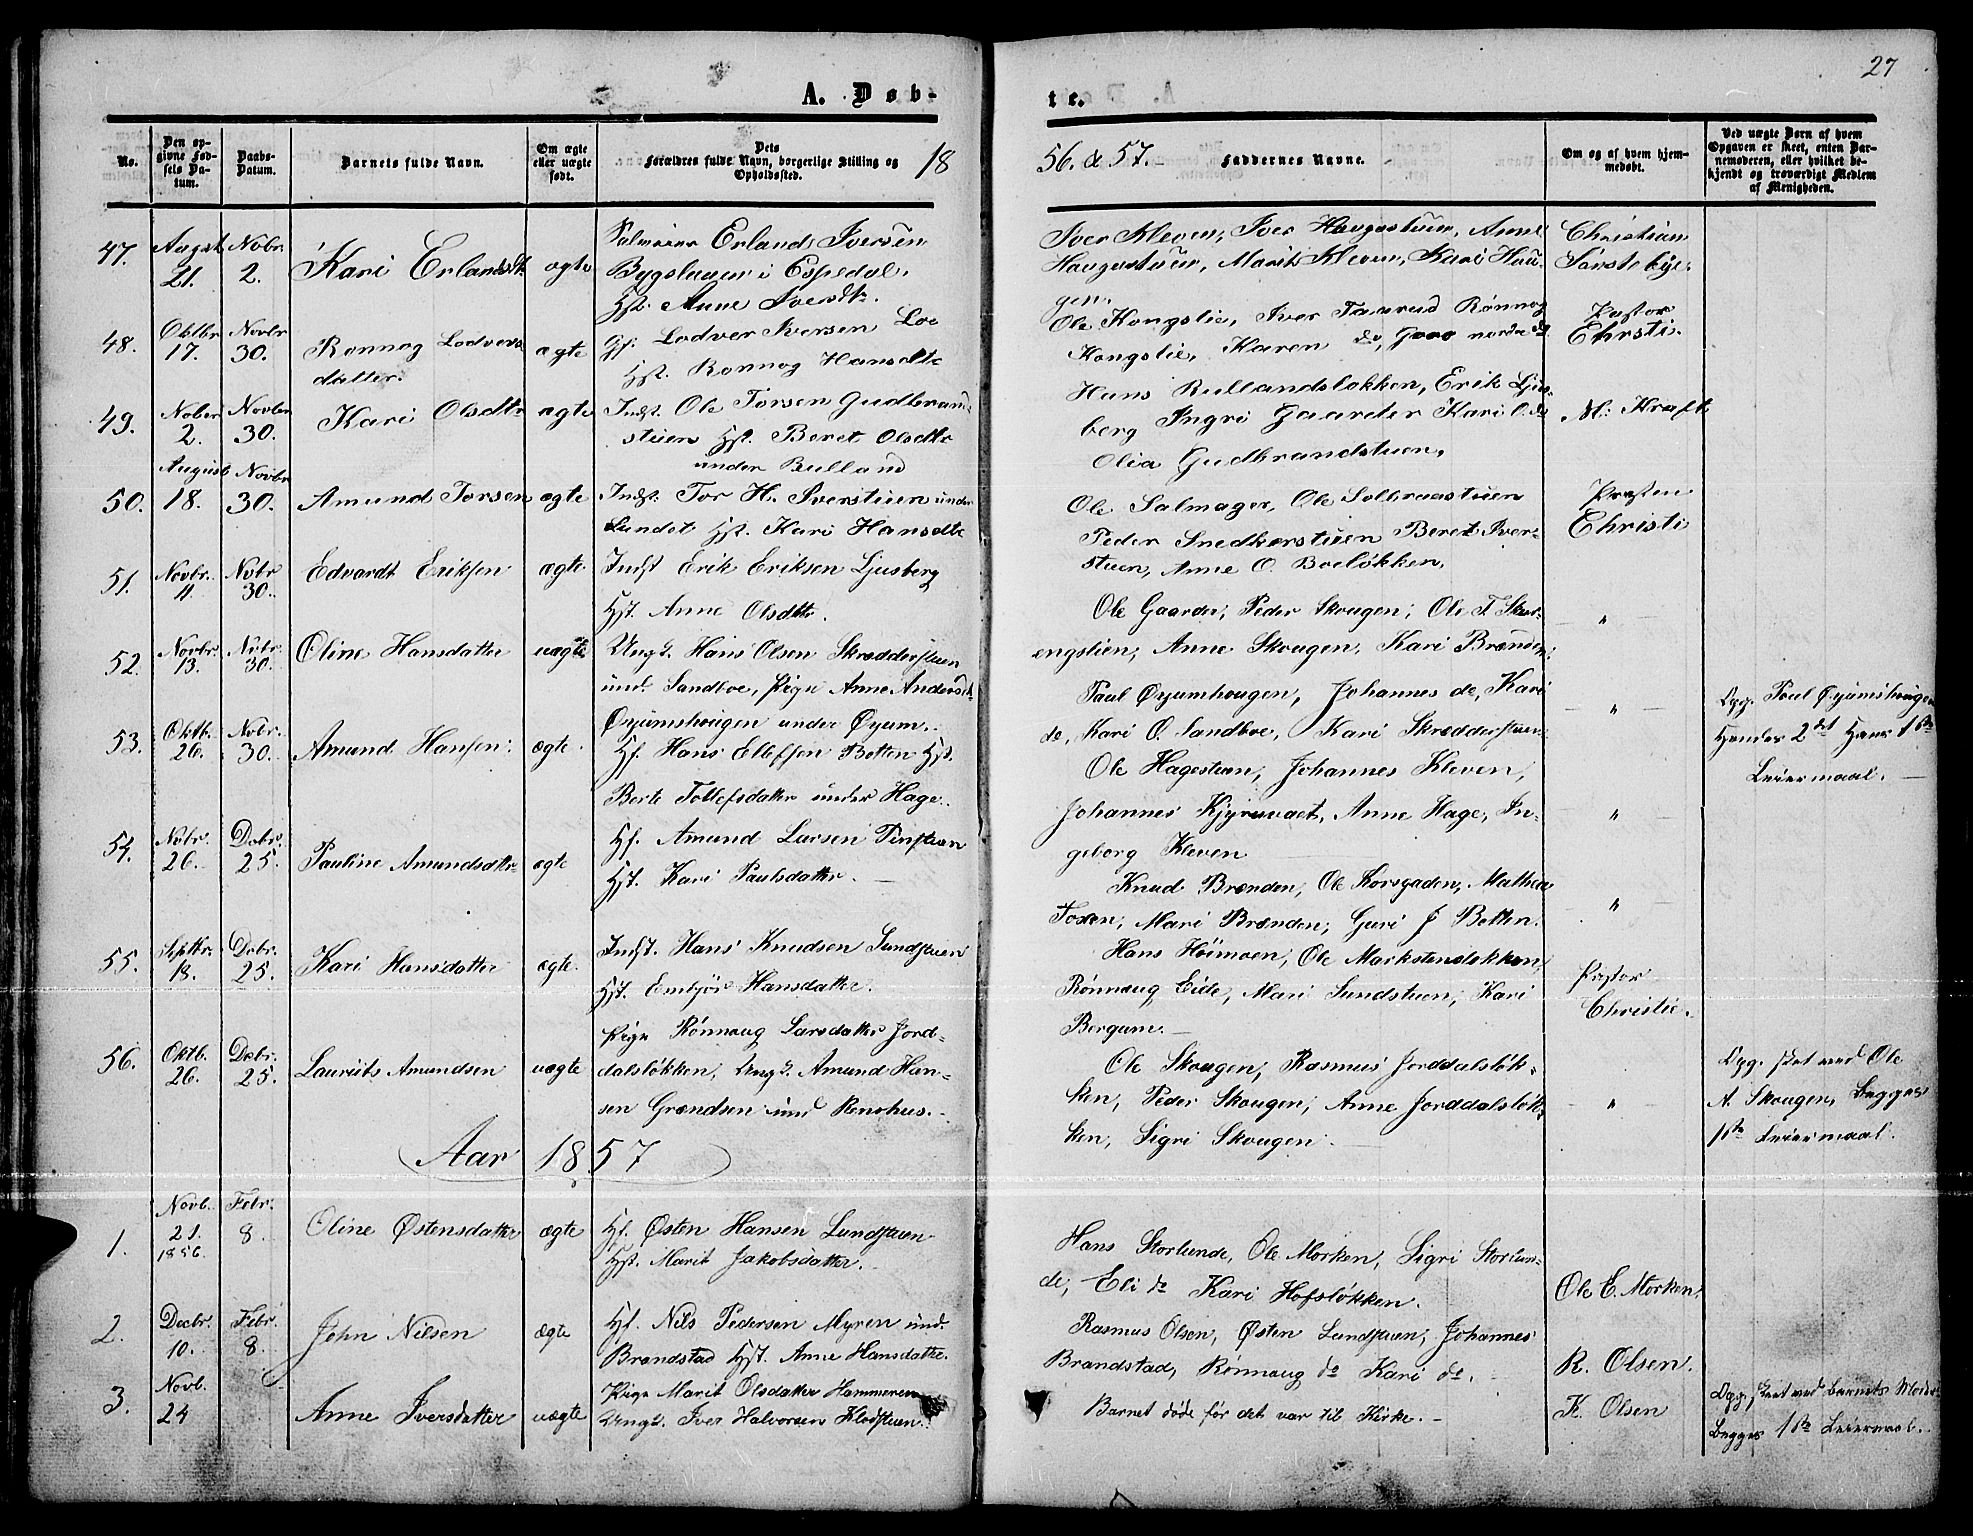 27
A. Døb-
te.
No.
Den op-
givne Fød-
sels Da-
tum.
Daabs-
Datum.
Barnets fulde Navn.
Om ægte
eller uægte
født.
Dets
Forældres fulde Navn, borgerlige Stilling og
Opholdssted.
18
56. & 57.
Faddernes Navne.
Om og af hvem hjem-
medøbt.
Ved uægte Børn af hvem
Opgaven er skeet, enten Bar-
nemoderen, eller hvilket be-
kjendt og troværdigt Medlem
af Menigheden.
47. Augst 21. Nobr. 2. Kari Erlandsdt. ægte
Erland Iversen
Bygslauer i Espedal.
Hst. Anne Iversdt.
Iver Kleven, Iver Haugastuen, Anne
Haugastuen, Marit Kleven, Kari Hau-
gen.
Christian
Sørstebye.
48. Oktbr 17. Novbr 30. Ronnog Lodvers
datter. ægte
Gf. Lodver Iversen Loe
Hst. Ronnog Hansdtr
Ole Kongslie, Iver Taarud Rønnog
Kongslie, Karen do, nordre do
Pastor
Christi.
49. Nober 2. Novber 30. Kari Olsdtr ægte
Indst. Ole Torsen Gudbrand-
stuen Hst. Beret Olsdtr
under Bulland
Hans Bullandsløkken, Erik Ljus-
berg Ingri Gaarder Kari O. do
Olia Gudbrandstuen.
M: Kraft
50. August 18. Novbr 30. Amund Torsen ægte
Indst. Tor H. Iverstuen under
Lundet Hst. Kari Hansdtr
Ole Salmager, Ole Solbraastuen
Peder Snedkerstuen Beret Iver-
stuen, Anne O. Boeløkken.
Presten
Christi
51. Novbr. 11. Nvbr 30. Edvardt Eriksen ægte.
Indst Erik Eriksen Ljusberg
Hst. Anne Olsdtr.
Ole Gaarder, Peder Skougen; Ole T. Skur-
engslien, Anne Skougen, Kari Brænden.
"
52. Novbr. 13. Nvbr. 30. Oline Hansdatter uægte
Ungk. Hans Olsen Skrædderstuen
und. Sandboe, Pige Anne Andersdt.
Øyumshougen under Øyum.
Paul Øyumhougen, Johannes do, Kari
do, Kari O. Sandboe, Kari Skrædderstuen.
"
Opg. Poul Øyumshougen
Hendes 2det Hans 1ste
Leiermaal.
53. Oktb. 26. Nobr. 30. Amund Hansen. ægte.
Hf. Hans Ellefsen Botten Hst.
Berte Tollefsdatter under Hage.
Ole Hagestuen, Johannes Kleven,
Johannes Kjyruvaet, Anne Hage, In-
geborg Kleven
"
54. Nobr. 26. Decbr. 25. Pauline Amundsdatr ægte
Hf. Amund Larsen Tinstuen
Hst. Kari Paulsdatter.
Knud Brænden, Ole Korsgaden, Mathea
Toxen, Mari Brænden, Guri J Botten.
"
55. Septbr. 18. Decbr. 25. Kari Hansdatter ægte.
Indst. Hans Knudsen Sundstuen
Hst. Embjør Hansdatter.
Hans Høimoen, Ole Markstensløkken,
Rønnaug Eide, Mari Sundstuen, Kari
Bergum.
Pastor
Christie.
56. Oktb. 26. Decbr. 25. Laurits Amundsen uægte
Pige Rønnaug Larsdatter Jord-
dalsløkken, Ungk. Amund Han-
sen Grændsen und Renohus.
Ole Skougen, Rasmus Jorddalsløk-
ken, Peder Skougen, Anne Jorddalsløk-
ken, Sigri Skougen.
"
Opg. skeet ved Ole
A. Skougen, Begges
1ste Leiermaal.
Aar 1857
1. Novb. 21. 1856 Febr. 8. Oline Østensdatter ægte
Hf. Østen Hansen Lundstuen
Hst. Marit Jakobsdatter.
Hans Storlunde, Ole Morken, Sigri Storlun-
de, Eli do Kari Hofsløkken.
Ole E. Morken.
2. Decbr. 10. Febr. 8. John Nilsen ægte
Hf. Nils Pedersen Myren und.
Brandstad Hst. Anne Hansdatter.
Rasmus Olsen, Østen Lundstuen, Johannes
Brandstad, Rønnaug do Kari do.
R. Olsen.
3. Novb. 24 Anne Iversdatter uægte
Pige Marit Olsdatter Hammeren
Ungk. Iver Halvorsen Klodstuen.
Barnet døde før det var til Kirke.
K. Olsen
Opg. skeet ved Barnets Moder
Begges 1ste Leiermaal.